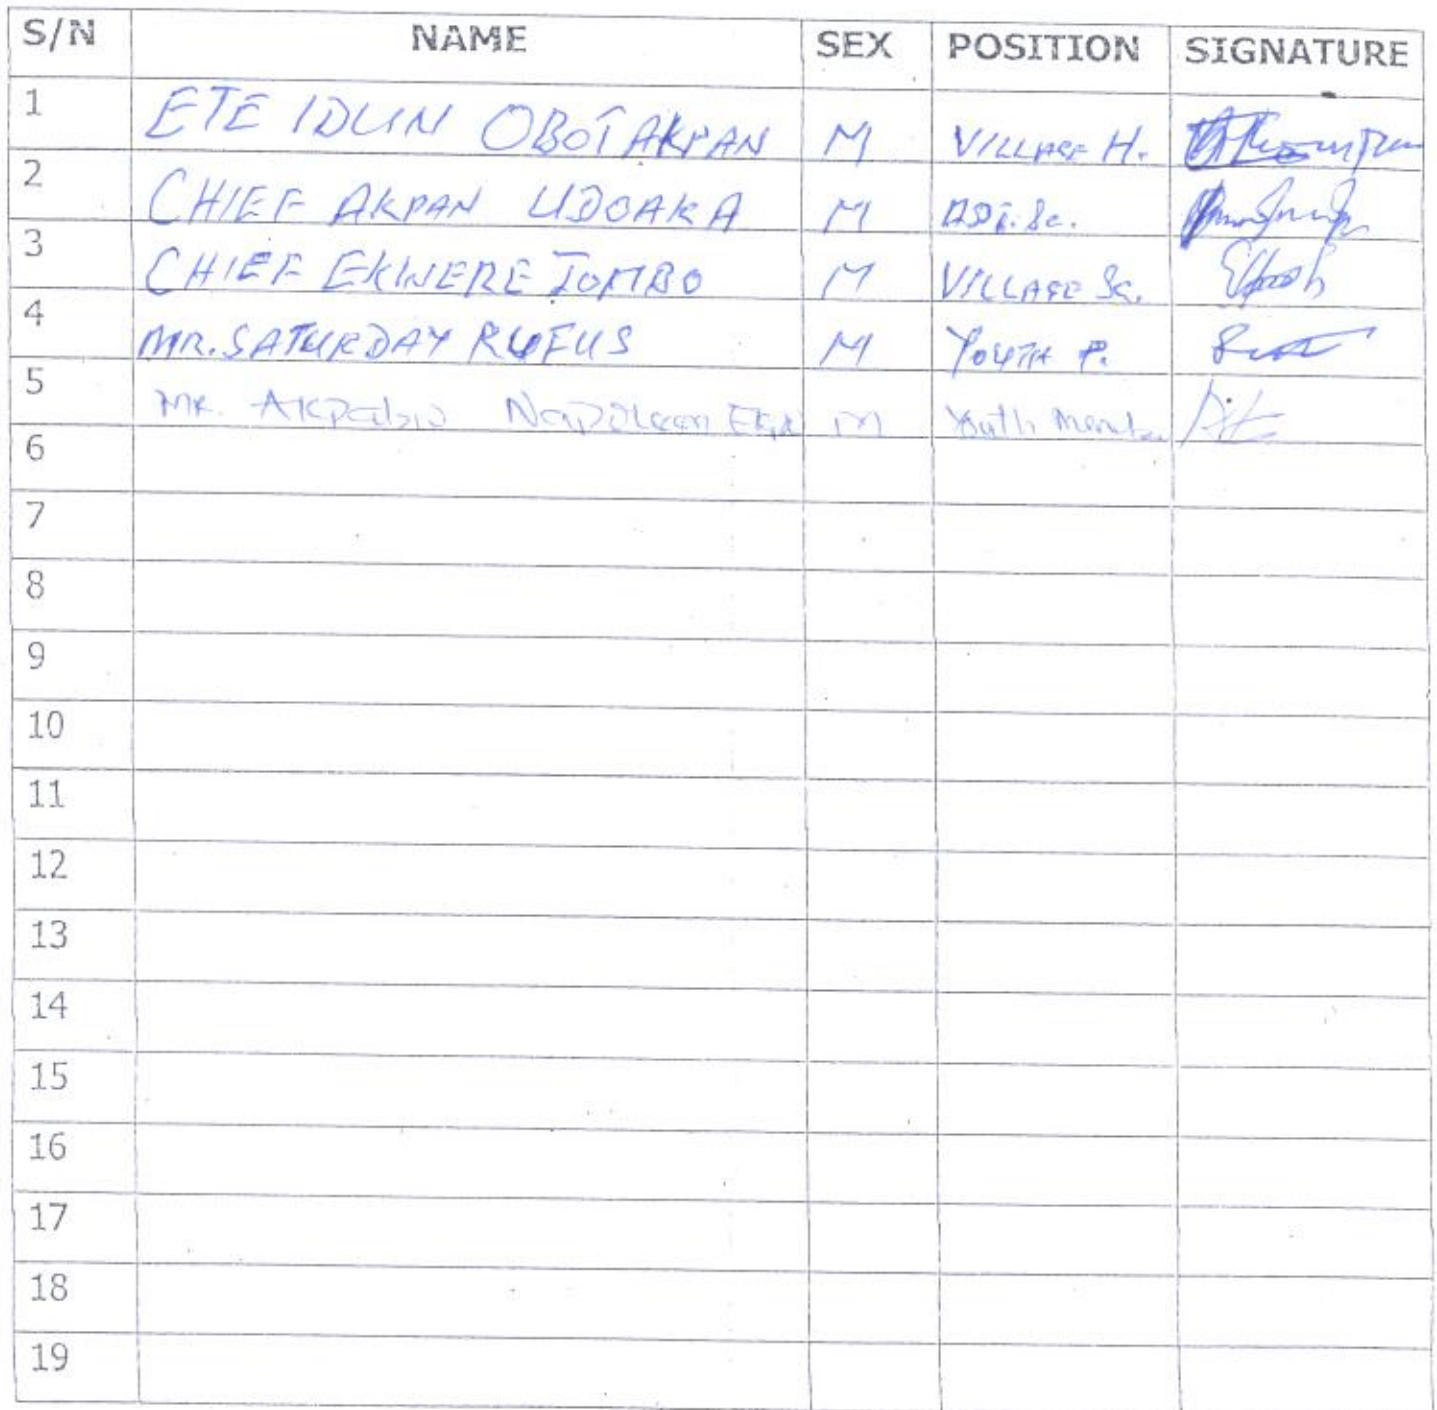 S/N NAME SEX POSITION SIGNATURE
1 ETE IDUN OBOT AKPAN M VILLAGE H.
2 CHIEF AKPAN UDOAKA M
3 CHIEF EKWERE TOMBO M VILLAGE Sc.
4 MR. SATURDAY RUFUS M YOUTH P.
5 MR. Akpabio Napoleon M Youth
6
7
8
9
10
11
12
13
14
15
16
17
18
19